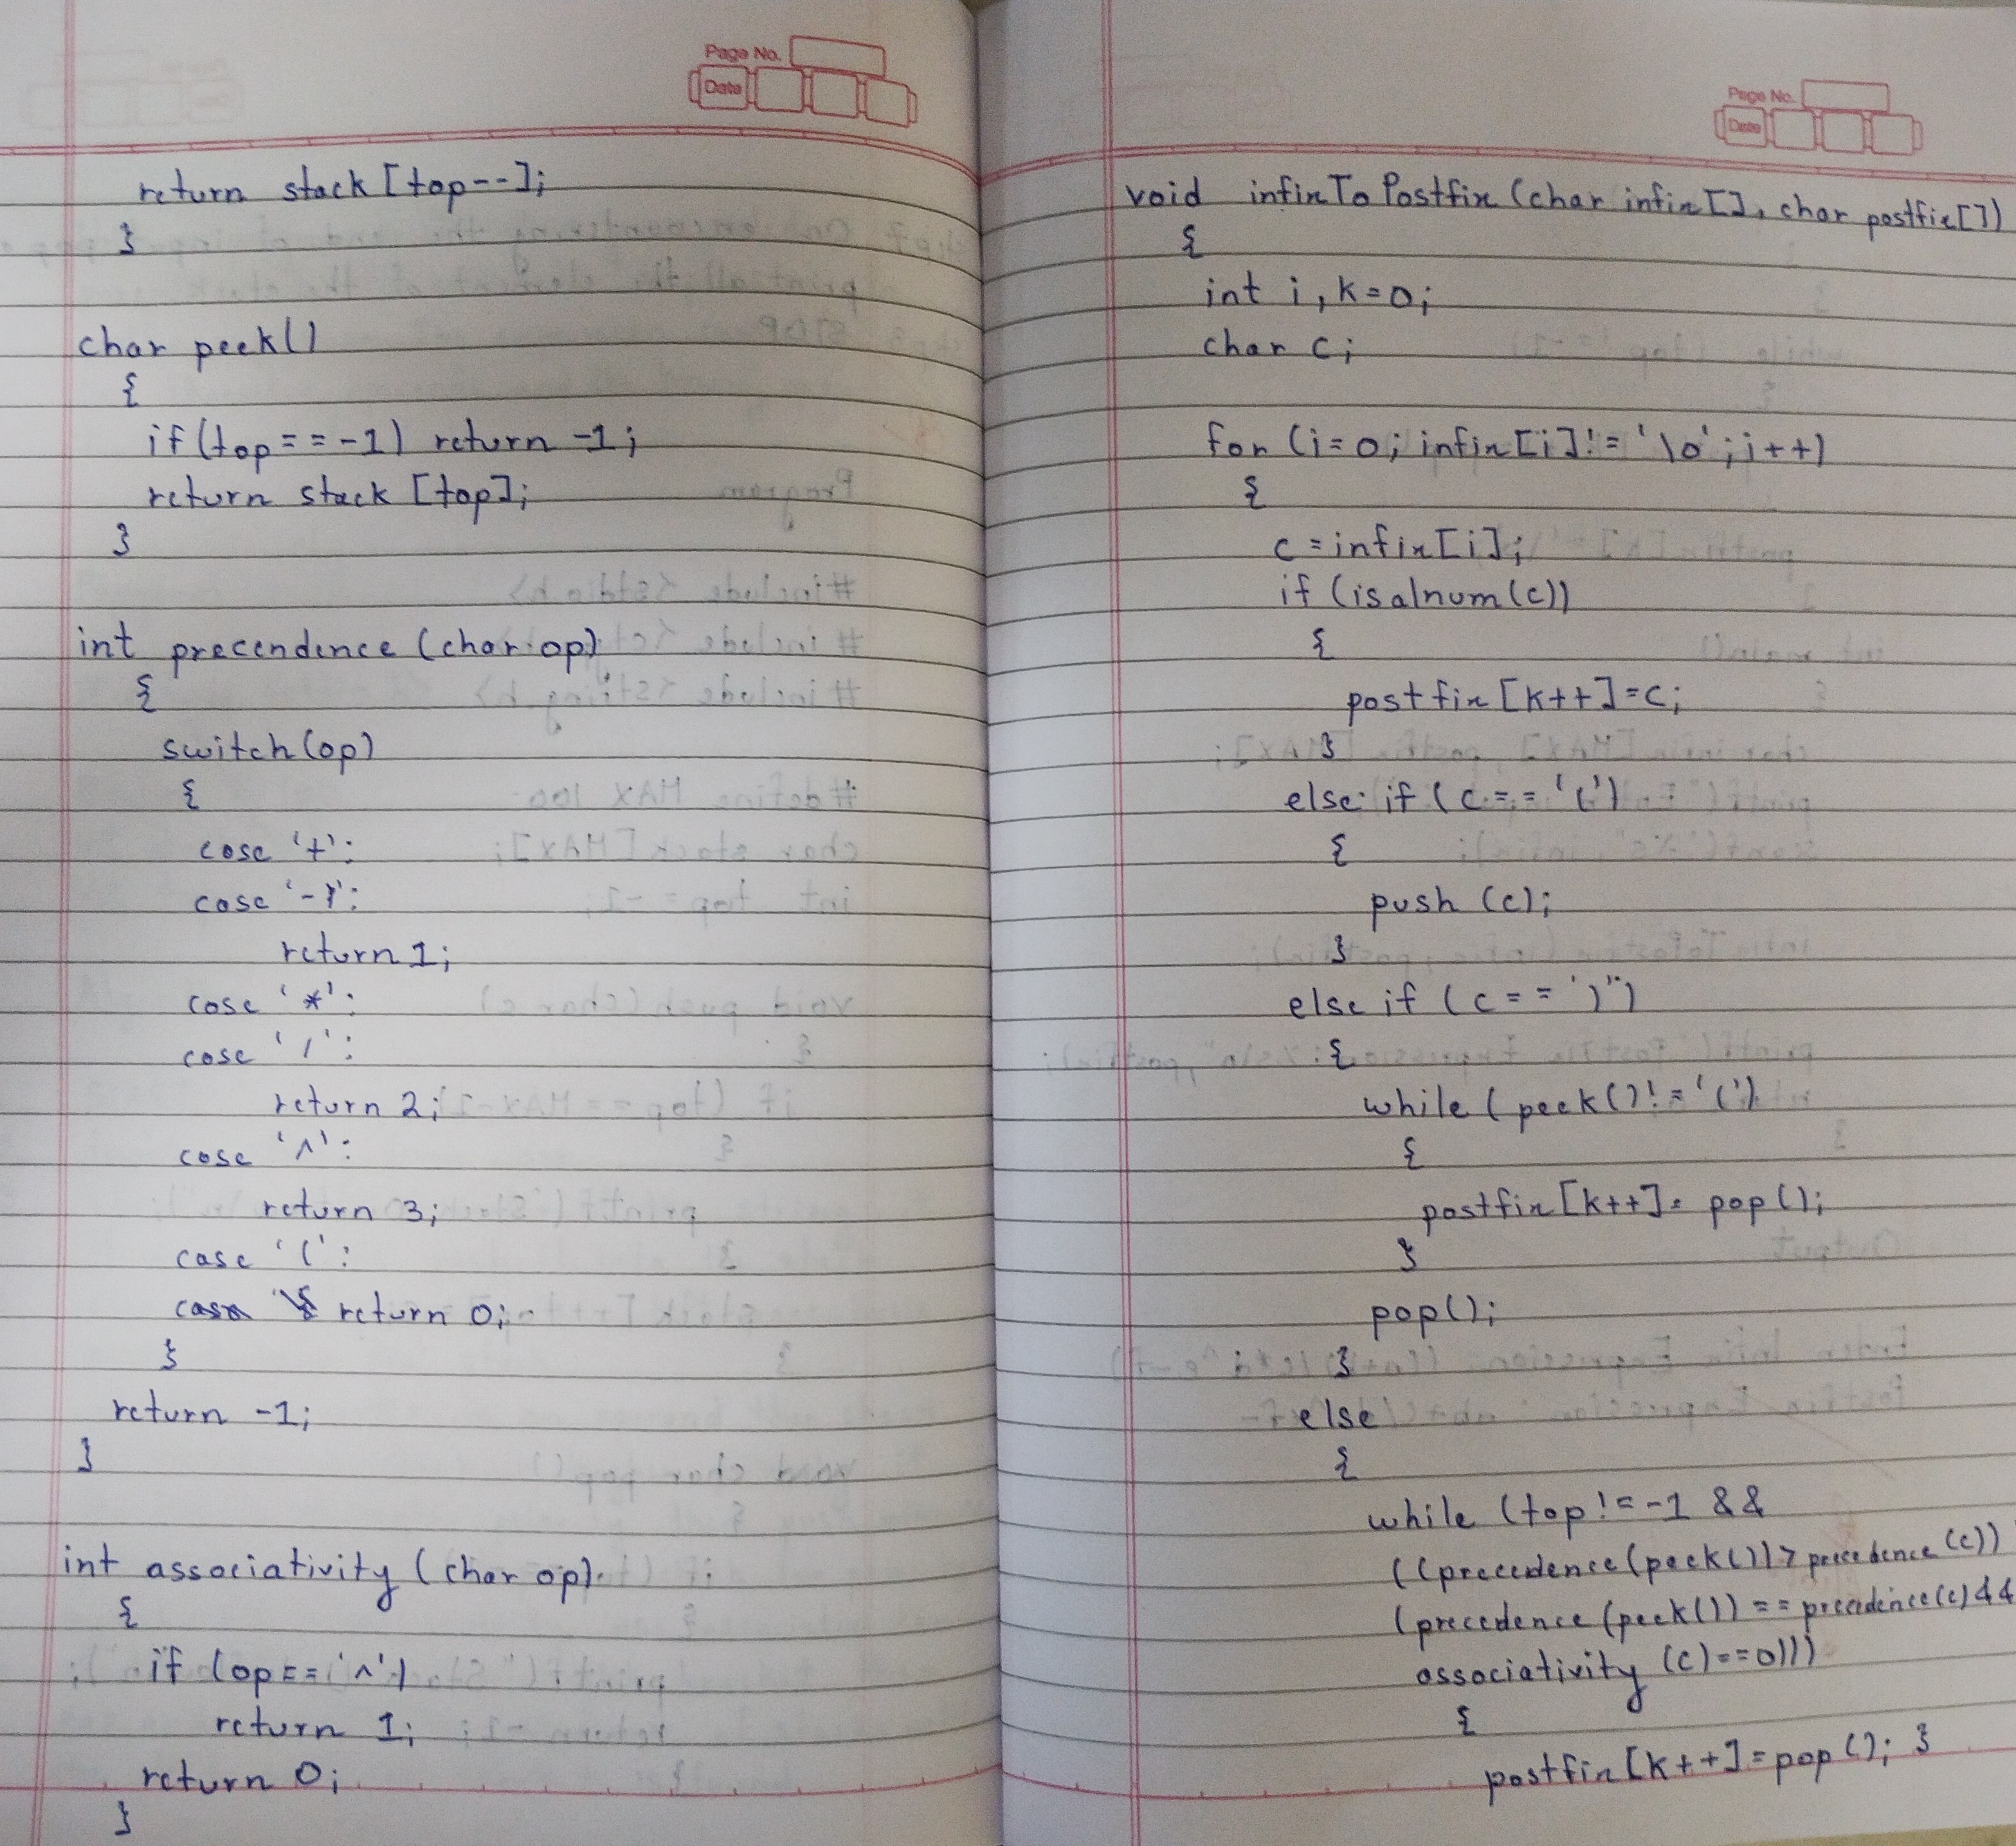 Page No.
Date
return stack [top--];
}
char peek()
{
if(top == -1) return -1;
return stack [top];
}
int precendence (char op)
{
switch (op)
{
case '+':
case '-':
return 1;
case '*':
case '/':
return 2;
case '^':
return 3;
case '(':
return 0;
}
return -1;
}
int associativity (char op)
{
if (op == '^')
return 1;
return 0;
}
Page No.
Date
void infixToPostfix (char infix[], char postfix[])
{
int i, k=0;
char c;
for (i=0; infix[i]!='\0'; i++)
{
c = infix[i];
if (isalnum(c))
{
postfix [k++]=c;
}
else if (c == '(')
{
push (c);
}
else if (c == ')'')
{
while (peek()!='(')
{
postfix [k++]= pop();
}
pop();
}
else
{
while (top != -1 &&
((precedence (peek()) > precedence (c))
(precedence (peek()) == precedence(c) &&
associativity (c)==0)))
{
postfix [k++]=pop(); }